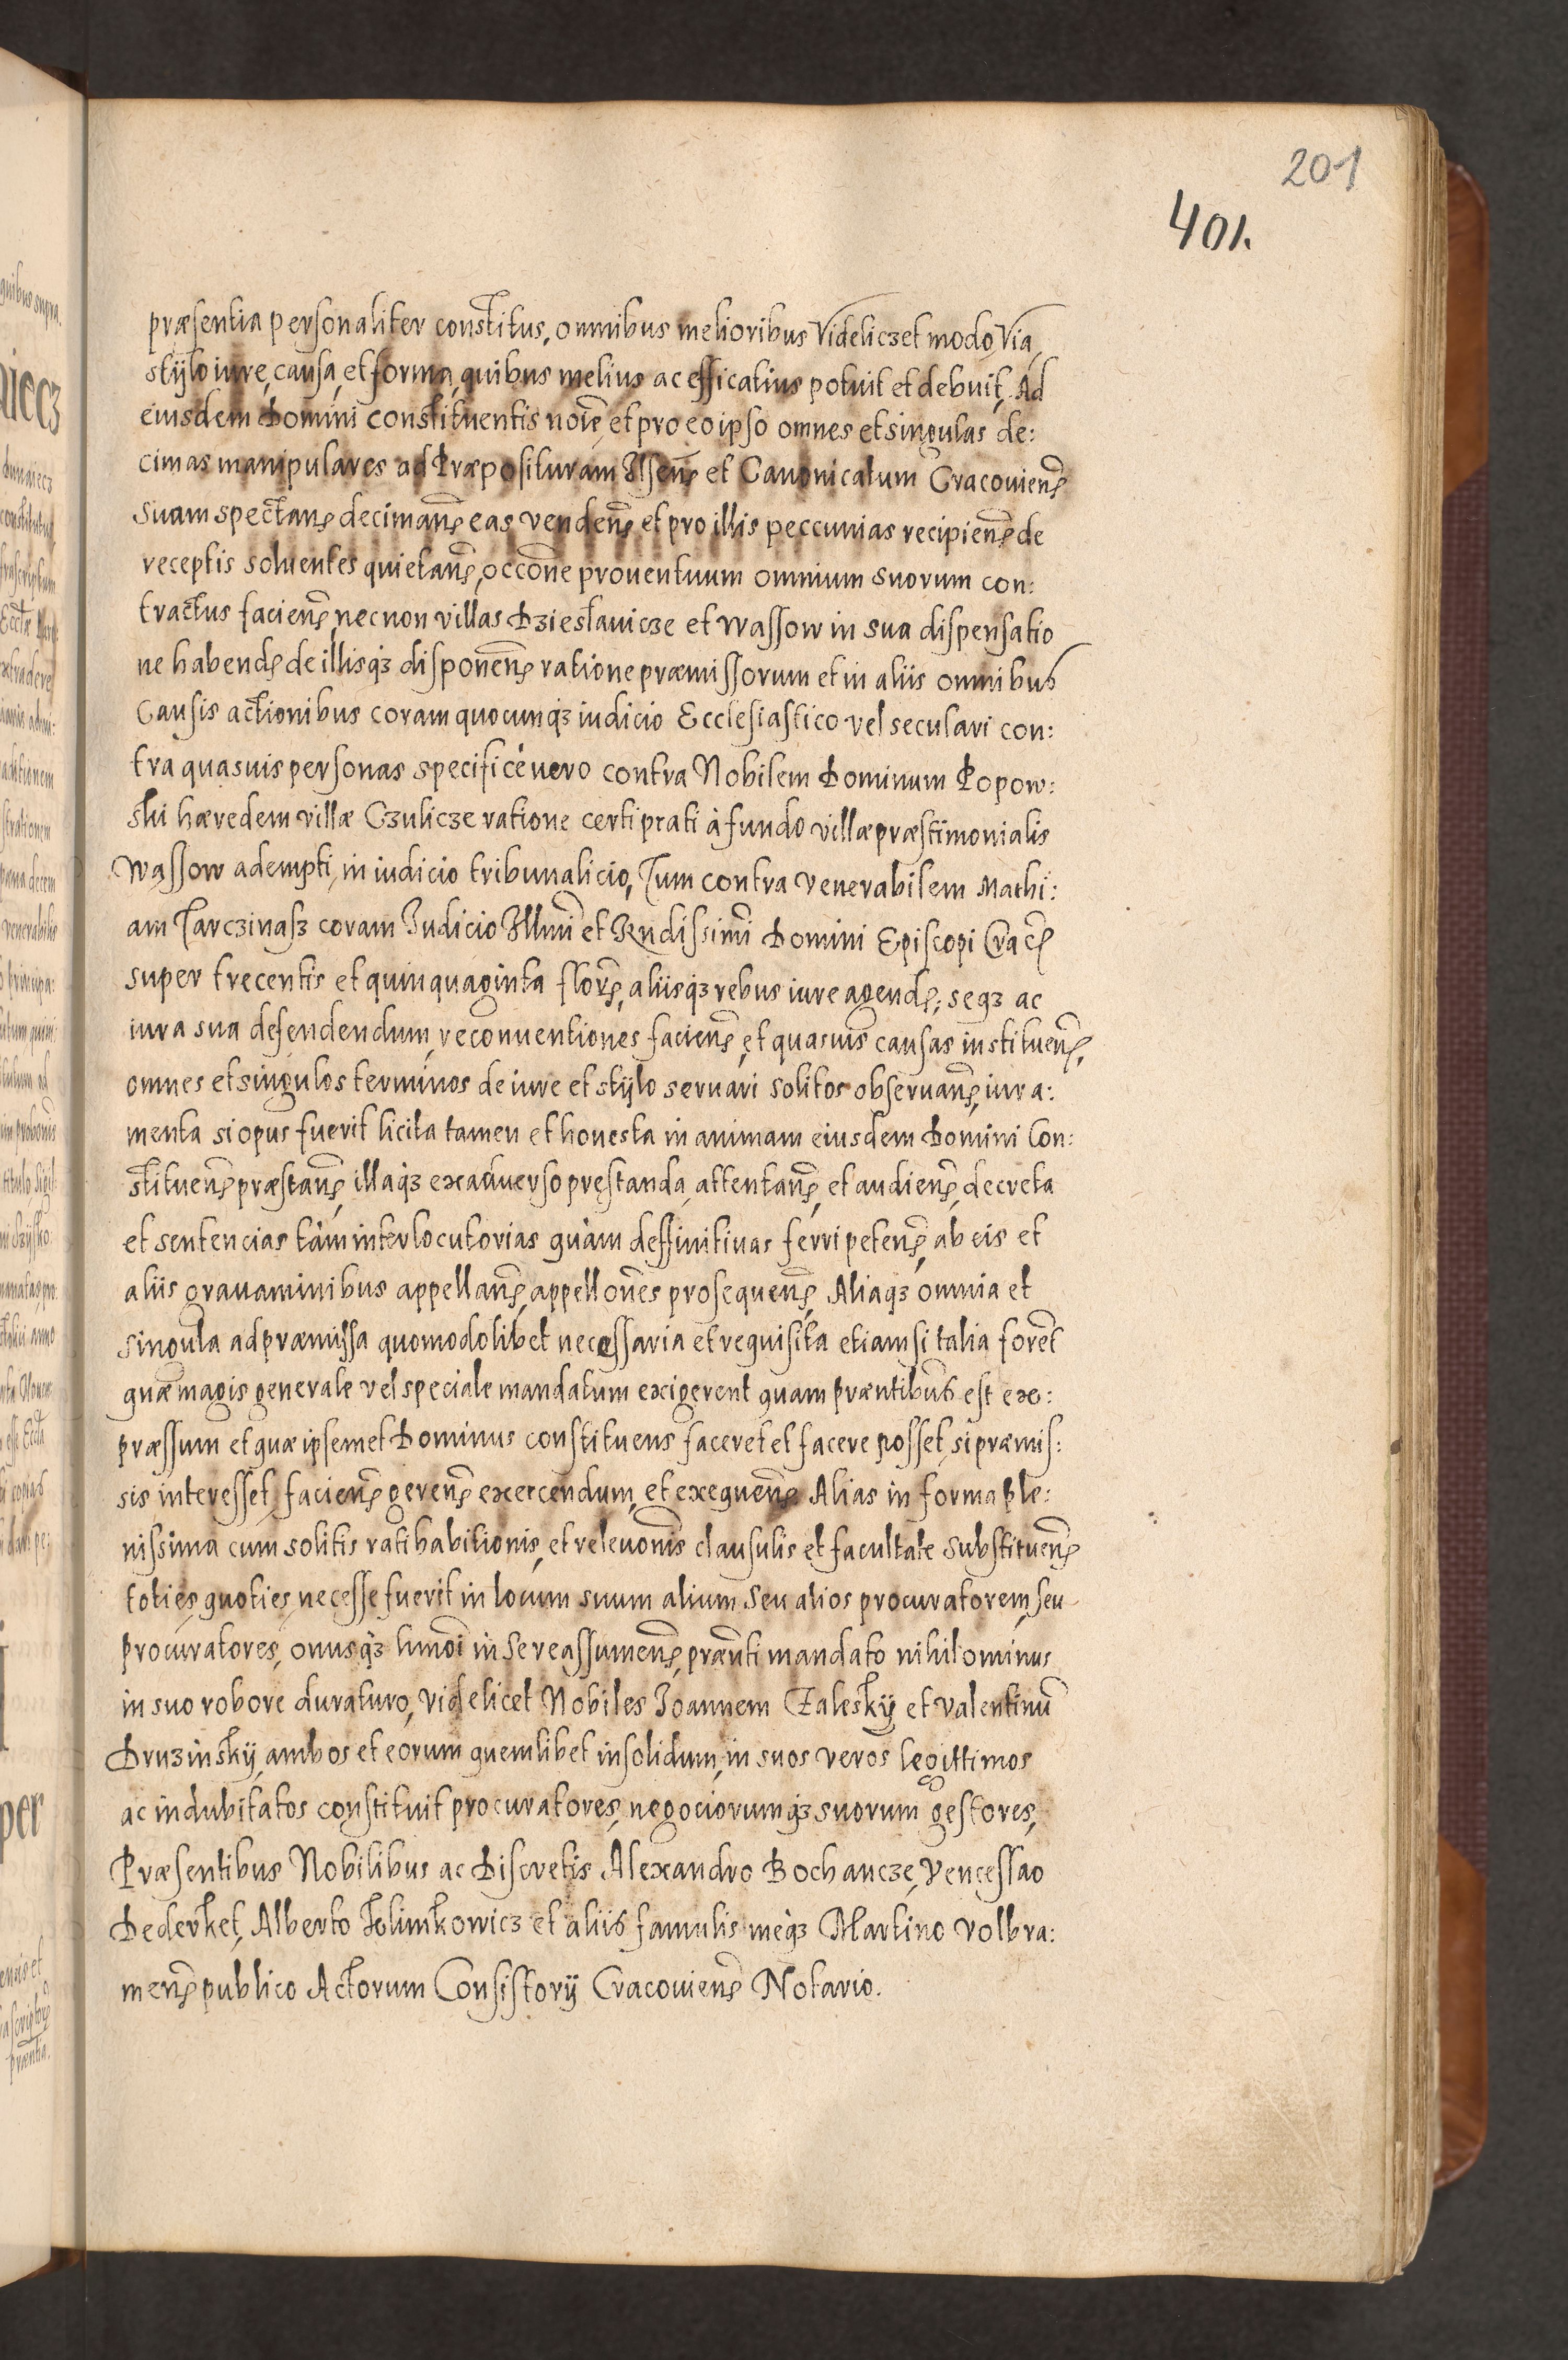 201
401.
præsentia personaliter constitus, omnibus melioribus videliczet modo, via,
stÿlo iure, causa, et forma, quibus melius ac efficatius potuit et debuit, Ad
eiusdem Domini constituentis noīe, et pro eo ipso omnes et singulas de:
cimas manipulares ad Præposituram Ilsens et Canonicatum Cracouiens
suam spectans decimans eas vendens et pro illis peccunias recipiens de
receptis soluentes quietans, occōne prouentuum omnium suorum con:
tractus faciens, necnon villas Dziestawicze et Wassow in sua dispensatio
ne habends de illisqз disponens ratione præmissorum et in aliis omnibus
Causis actionibus coram quocunqз iudicio Ecclesiastico vel seculari con:
tra quasuis personas specificè uero contra Nobilem Dominum Popow:
ski hæredem villæ Czulicze ratione certi prati à fundo villæ præstimonialis
Wassow adempti, in iudicio tribunalicio, Tum contra venerabilem Mathi:
am Tarczinasz coram Judicio Illmi et Rndissimi Domini Episcopi Crac
super trecentis et quinquaginta flors, aliisqз rebus iure agends; seqз ac
iura sua defendendum, reconuentiones faciens, et quasuis causas instituens,
omnes et singulos terminos de iure et stÿlo seruari solitos obseruans, iura:
menta si opus fuerit licita tamen et honesta in animam eiusdem Domini Con:
stituens præstans, illaqз ex aduerso præstanda, attentans, et audiens, decreta
et sentencias tàm interlocutorias quàm deffinitiuas ferri petens, ab eis et
aliis grauaminibus appellans, appellones prosequens, Aliaqз omnia et
singula ad præmissa quomodolibet necessaria et requisita etiamsi talia foret
quæ magis generale vel speciale mandatum exigerent quam præntibus est ex:
præssum et quæ ipsemet Dominus constituens faceret et facere posset, si præmis:
sis interesset, faciens gerens exercendum, et exequens Alias in forma ple:
nissima cum solitis ratihabitionis, et releuonis clausulis et facultate substituens
toties quoties necesse fuerit in locum suum alium seu alios procuratorem, seu
procuratores, onusqз hmoi in se reassumens, prænti mandato nihilominus
in suo robore duraturo, videlicet Nobiles Joannem Zaleskÿ et valentinū
Druzinskÿ, ambos et eorum quemlibet insolidum, in suos veros legittimos
ac indubitatos constituit procuratores, negociorumqз suorum gestores,
Præsentibus Nobilibus ac Discretis Alexandro Bochancze, Vencessao
Dederket, Alberto Klimkowicz et aliis famulis meqз Martino Volbra:
mens publico Actorum Consistorÿ Cracouiens Notario.